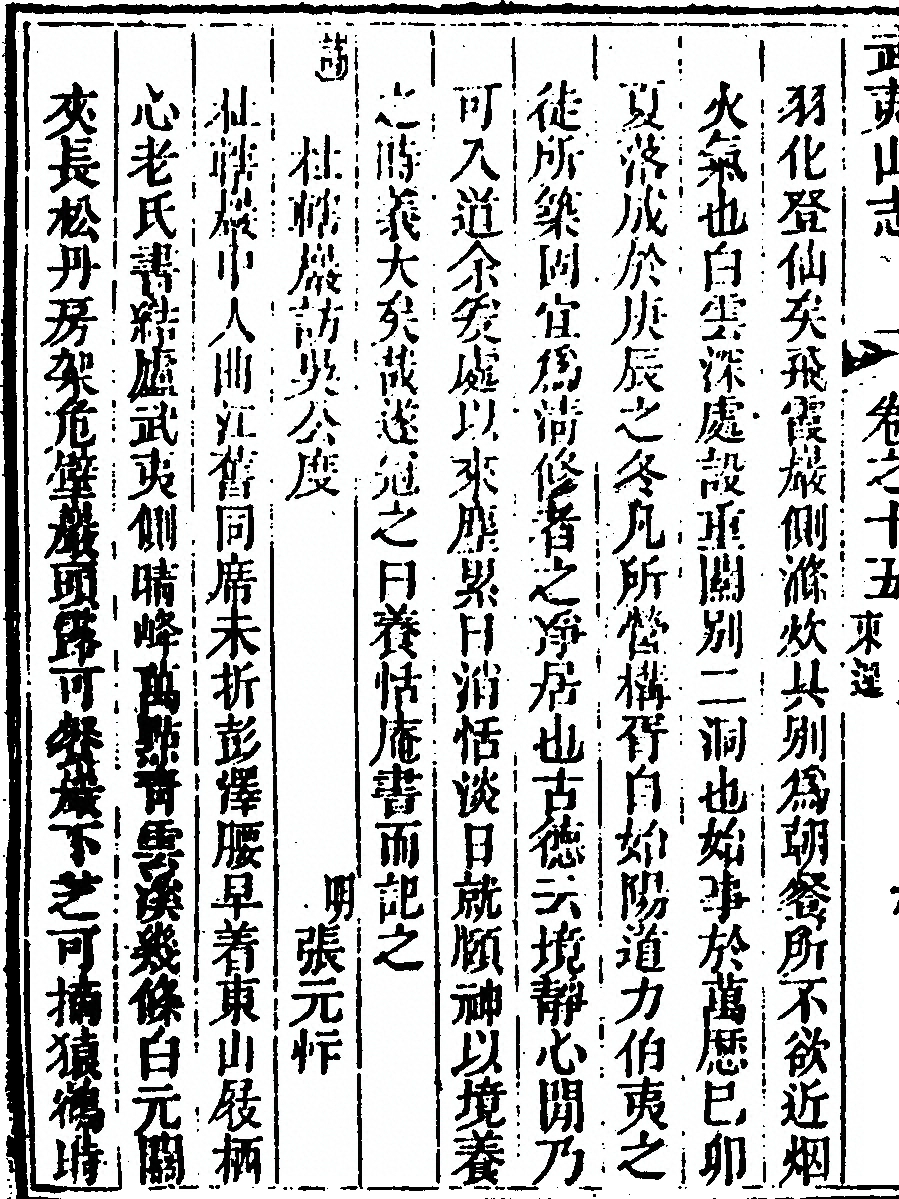 武夷山志 卷之十五 東選
羽化登仙矣飛霞巖側滌炊具別為朝餐所不欲近烟
火氣也白雲深處設重關別二洞也始事於萬歷已卯
夏落成於庚辰之冬凡所營構胥自始陽道力伯夷之
徒所築固宜為清修者之凈居也古德云境靜心閒乃
可入道余爰處以來塵累日消恬淡日就頤神以境養
之時義大矣哉遂冠之曰養恬庵書而記之
詩
杜轄巖訪吳公度 明 張元忭
杜轄巖中人曲江舊同席未折彭澤腰早着東山屐栖
心老氏書結廬武夷側晴峰萬點青雲溪幾條白元關
夾長松丹房架危壁巖頭露可餐巖下芝可摘猿鶴時